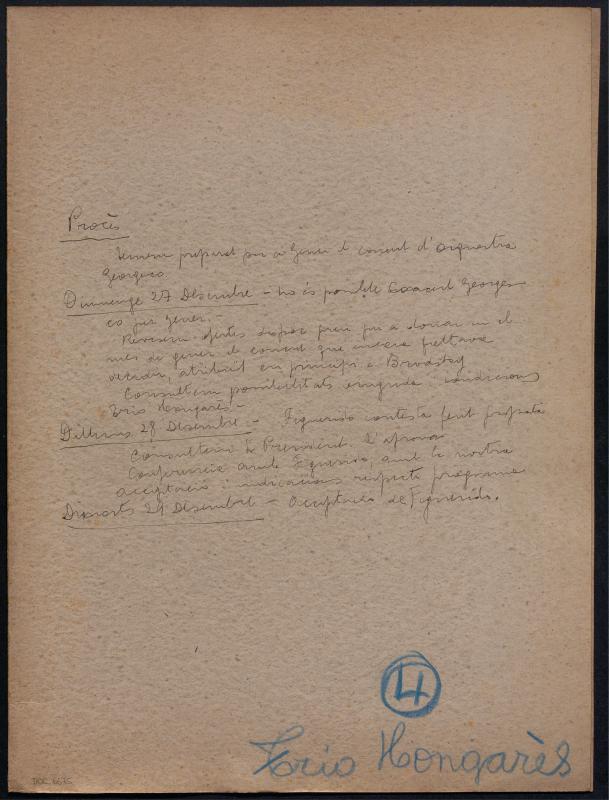 Procès
Teníem preparat per a Gener el concert d'orquestra
Georgesco.
Diumenge 27 Desembre - No és possible Concert Georges-
co per Gener. -
Revisem ofertes d'apoc preu per a donar en el
mes de gener el concert que encara
atribuït en principi a Brodsky
Consultem possibilitats vinguda i condicions
Trio Hongarès -
Dilluns 28 Desembre - Figuerido contesta fent proposta
Consultem la President. L'aprova
Conferència amb Figuerido, amb la nostra
acceptació i indicacions respecte programa
Dimarts 29 Desembre - Acceptació de Figuerido.
4
Trio Hongarès
DOC. 6675